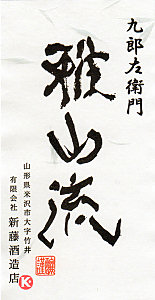 九郎左衛門
雅山流
山形県米沢市大字竹井
有限会社 新藤酒造店
K